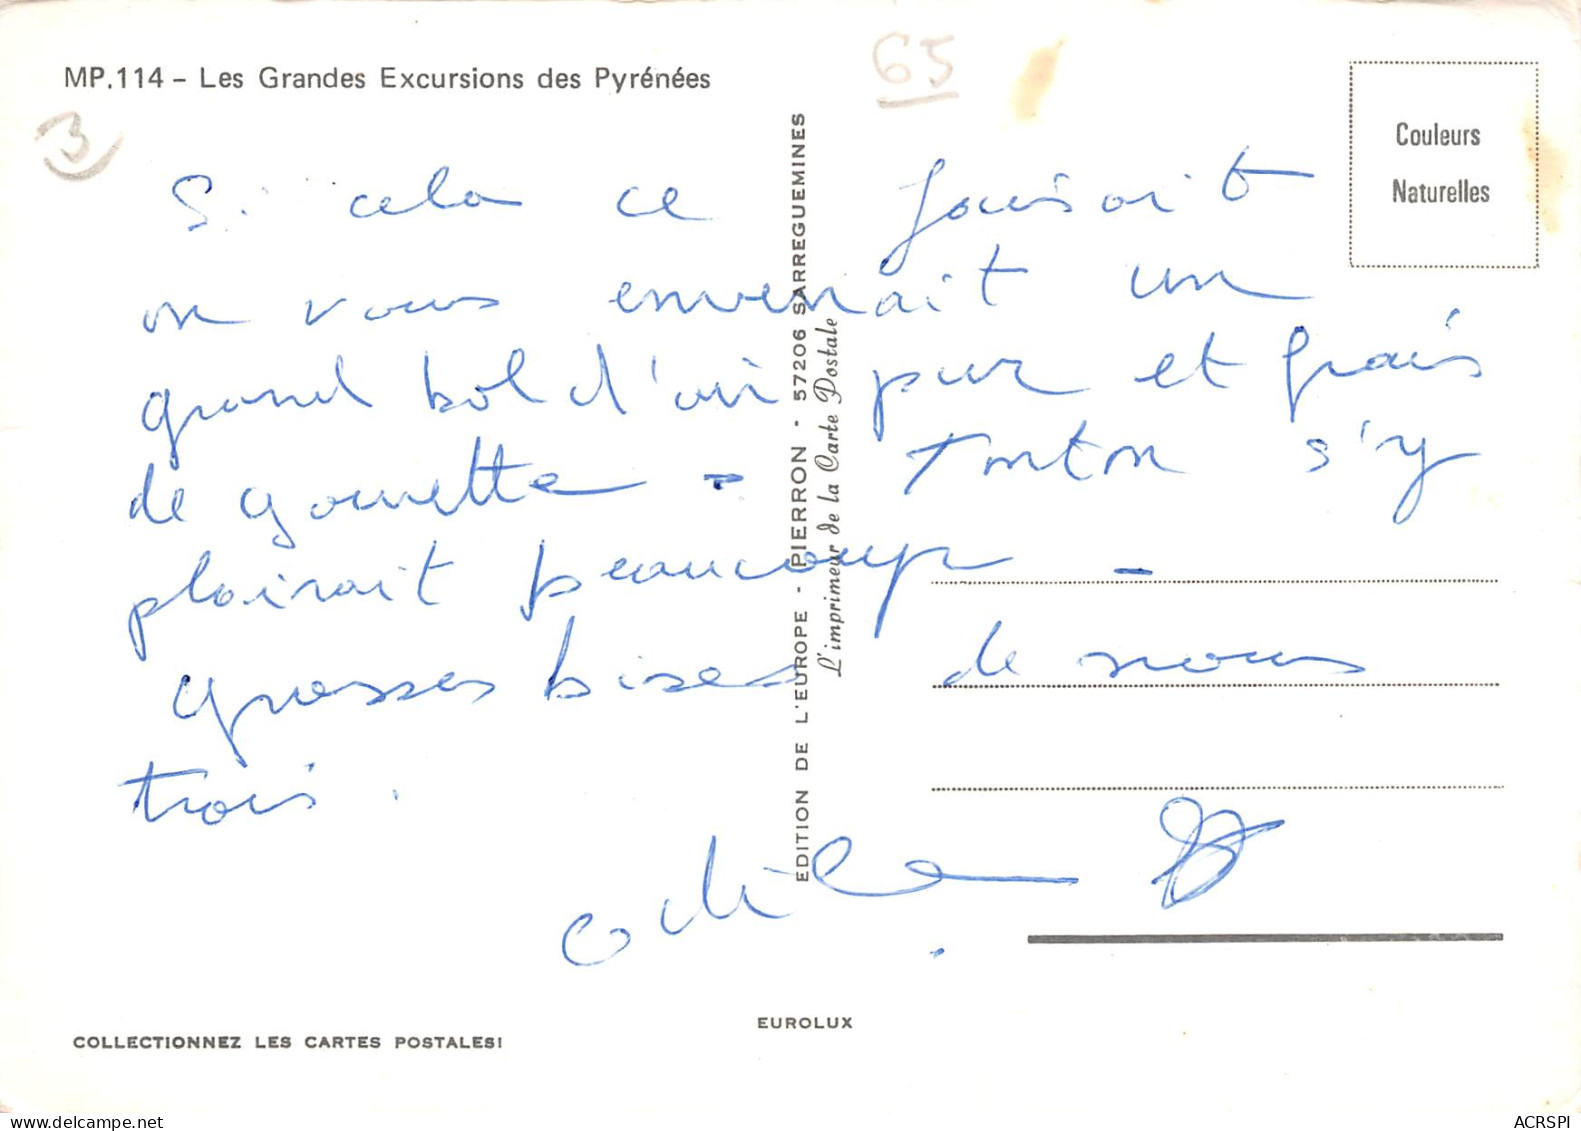 MP.114 – Les Grandes Excursions des Pyrénées
65
3
Couleurs
Naturelles
Si cela ce faisait
on vous enverrait un
grand bol d'air pur et frais
de gourette - Tonton s'y
plairait beaucoup -
grosses bises de nous
trois.
Odile
EDITION DE L'EUROPE - PIERRON - 57206 SARREGUEMINES
L'imprimeur de la Carte Postale
EUROLUX
COLLECTIONNEZ LES CARTES POSTALES!
ACRSPI